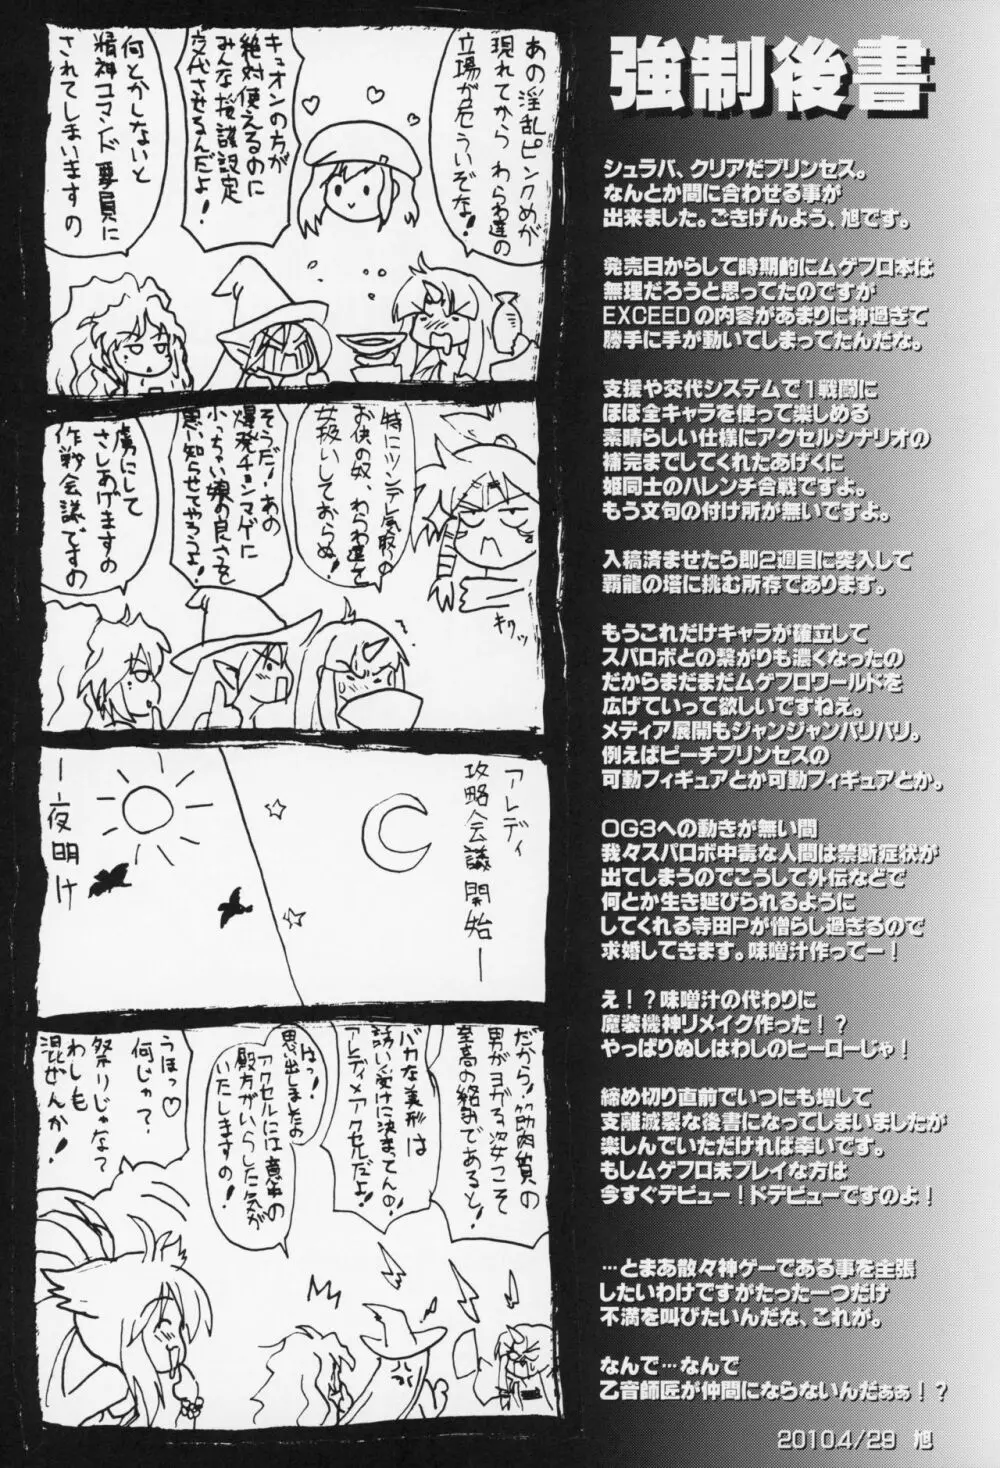 強制後書
シュラバ、クリアだプリンセス。
なんとか間に合わせる事が
出来ました。ごきげんよう、旭です。
発売日からして時期的にムゲフロ本は
無理だろうと思ってたのですが
EXCEEDの内容があまりに神過ぎて
勝手に手が動いてしまってたんだな。
支援や交代システムで1戦闘に
ほぼ全キャラを使って楽しめる
素晴らしい仕様にアクセルシナリオの
補完までしてくれたあげくに
姫同士のハレンチ合戦ですよ。
もう文句の付け所が無いですよ。
入稿済ませたら即2週目に突入して
覇龍の塔に挑む所存であります。
もうこれだけキャラが確立して
スパロボとの繋がりも濃くなったの
だからまだまだムゲフロワールドを
広げていって欲しいですねえ。
メディア展開もジャンジャンバリバリ。
例えばピーチプリンセスの
可動フィギュアとか可動フィギュアとか。
OG3への動きが無い間
我々スパロボ中毒な人間は禁断症状が
出てしまうのでこうして外伝などで
何とか生き延びられるように
してくれる寺田Pが憎らし過ぎるので
求婚してきます。味噌汁作ってー！
え！？味噌汁の代わりに
魔装機神リメイク作った！？
やっぱりぬしはわしのヒーローじゃ！
締め切り直前でいつにも増して
支離滅裂な後書になってしまいましたが
楽しんでいただければ幸いです。
もしムゲフロ未プレイな方は
今すぐデビュー！ドデビューですのよ！
…とまあ散々神ゲーである事を主張
したいわけですがたった一つだけ
不満を叫びたいんだな、これが。
なんで…なんで
乙音師匠が仲間にならないんだぁぁ！？
2010.4/29 旭
あの淫乱ピンクめが
現れてから わらわ達の
立場が危ういぞな！
キュオンの方が
絶対使えるのに
みんな桜譲設定
交代させるんだよ！
何とかしないと
精神コマンド要員に
されてしまいますの
特にツンデレ気取りの
お供の奴、わらわ達を
女扱いしておらぬ！
そうだ！あの
爆発チョンマゲに
小っちゃい娘の良さを
思い知らせてやろうよ！
虜にして
さしあげますの
作戦会議ですの
キリッ
アレディ
攻略会議開始ー
ー夜明け
だから！筋肉質の
男がヨガる姿こそ
至高の絡みであると！
バカな美形は
誘い受けに決まってんの！
アレディ×アクセルだよ！
はっ！
思い出しましたの
アクセルには意中の
殿方がいらした気が
いたしますの！
うほっ♡
何じゃ？
祭りじゃな？
わしも
混ぜんか！